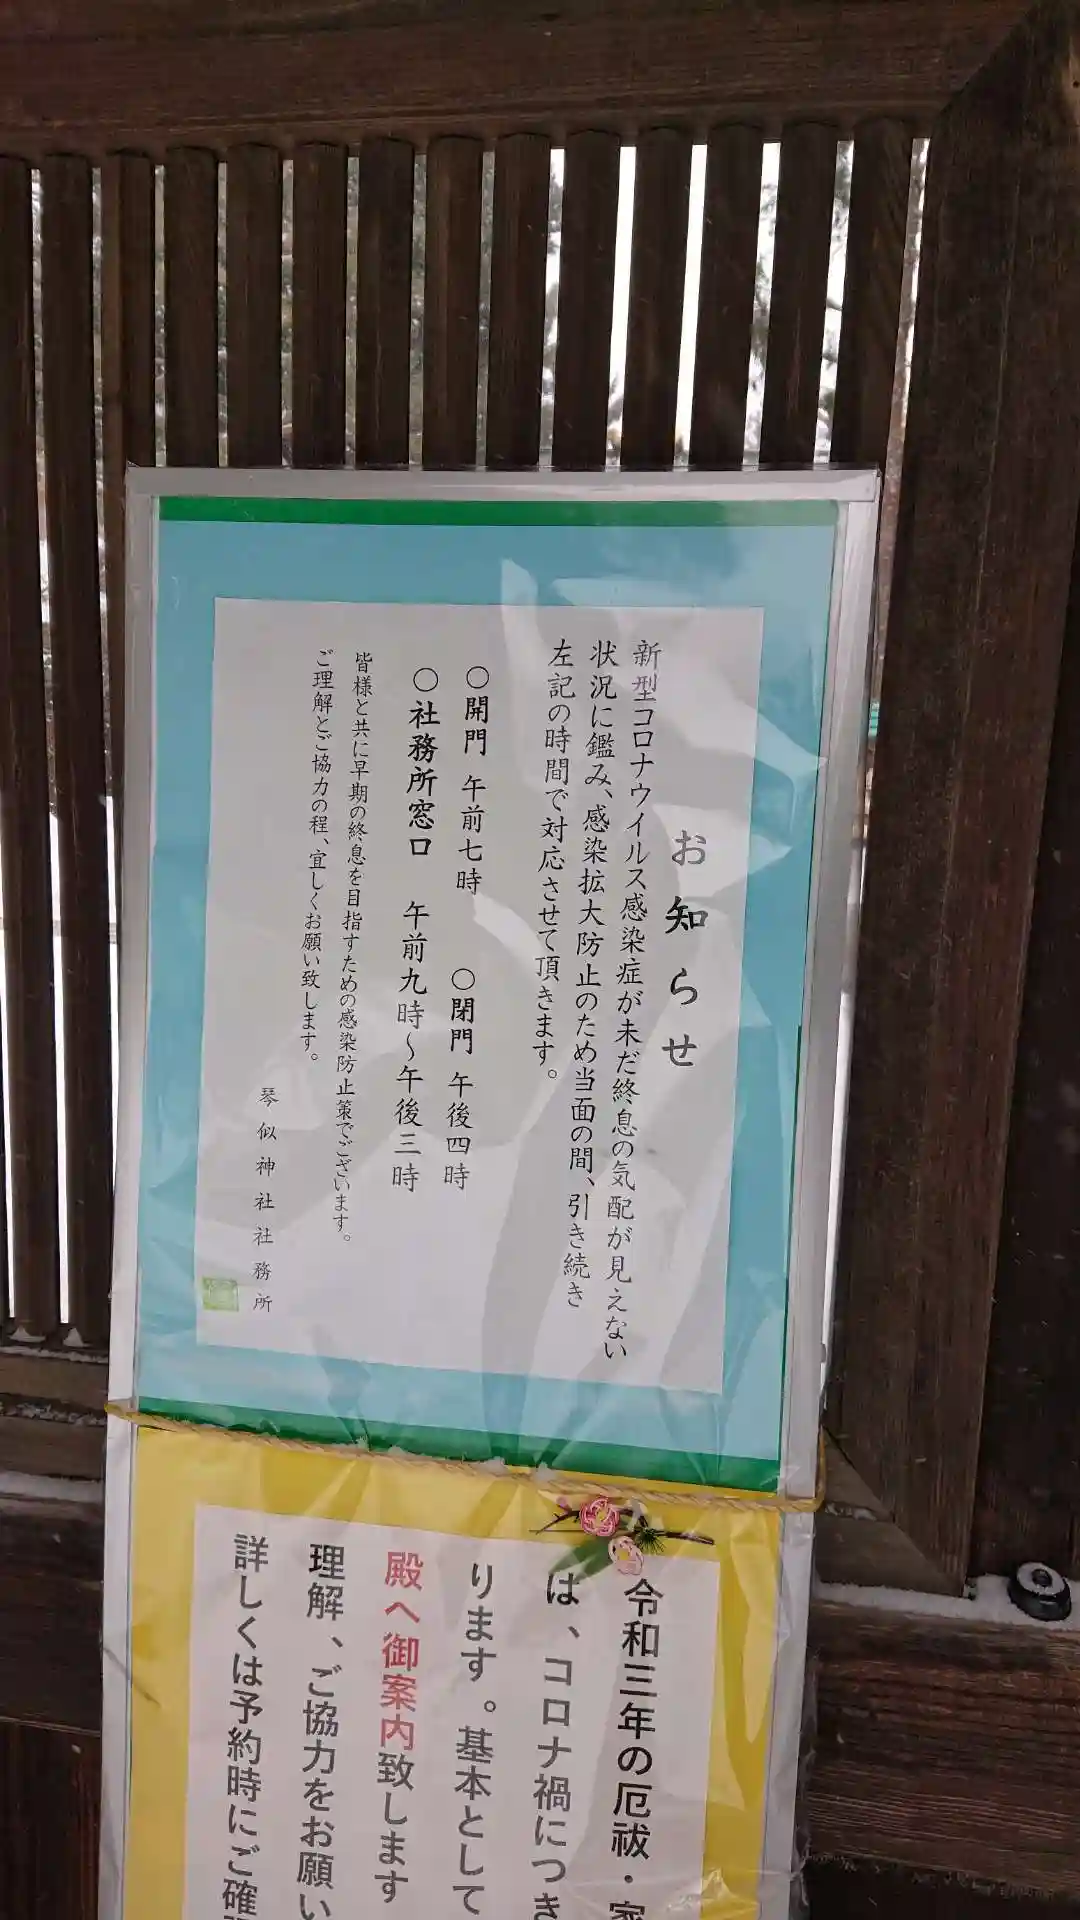 お知らせ
新型コロナウイルス感染症が未だ終息の気配が見えない
状況に鑑み、感染拡大防止のため当面の間、引き続き
左記の時間で対応させて頂きます。
○開門 午前七時 ○閉門 午後四時
○社務所窓口 午前九時～午後三時
皆様と共に早期の終息を目指すための感染防止策でございます。
ご理解とご協力の程、宜しくお願い致します。
琴似神社社務所
令和三年の厄祓・家
は、コロナ禍につき
ります。基本として
殿へ御案内致します
理解、ご協力をお願い
詳しくは予約時にご確